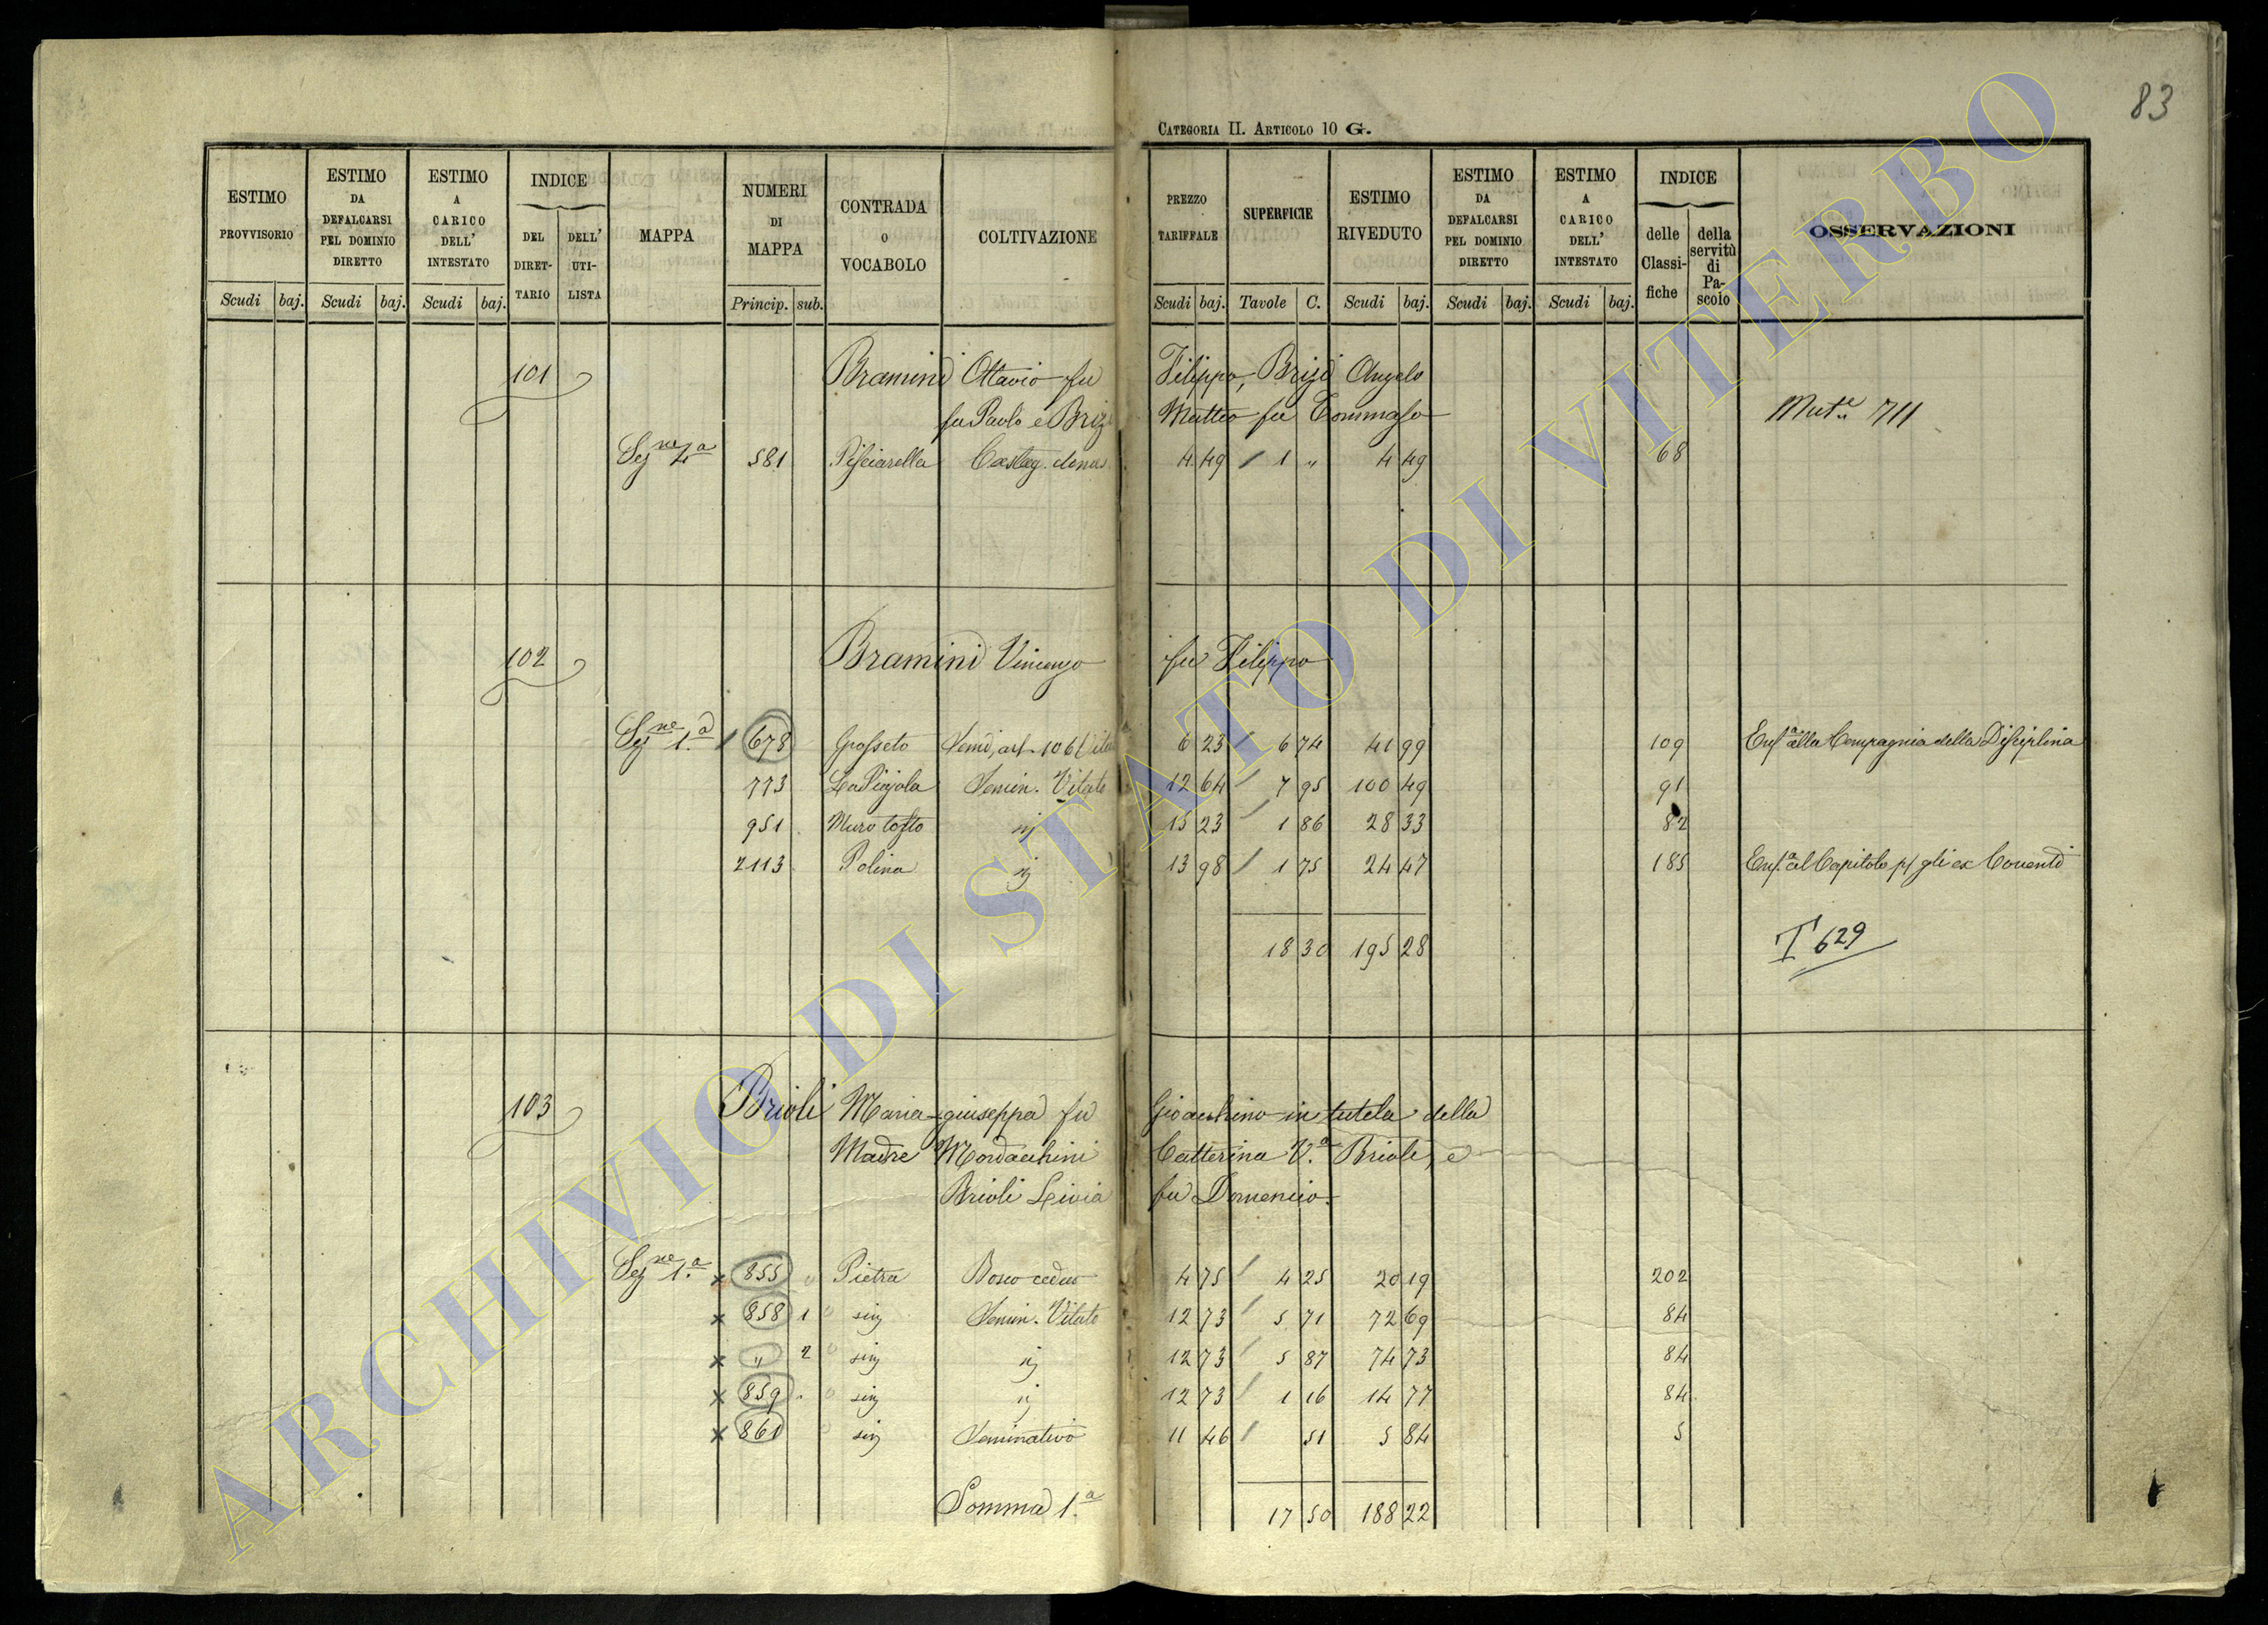 83
CATEGORIA II. ARTICOLO 10 G.
ESTIMO PROVVISORIO Scudi baj.
ESTIMO DA DEFALCARSI PEL DOMINIO DIRETTO Scudi baj.
ESTIMO A CARICO DELL' INTESTATO Scudi baj.
INDICE DEL DIRETTARIO DELL' UTILISTA
MAPPA
NUMERI DI MAPPA Princip. sub.
CONTRADA O VOCABOLO
COLTIVAZIONE
PREZZO TARIFFALE Scudi baj.
SUPERFICIE Tavole C.
ESTIMO RIVEDUTO Scudi baj.
ESTIMO DA DEFALCARSI PEL DOMINIO DIRETTO Scudi baj.
ESTIMO A CARICO DELL' INTESTATO Scudi baj.
INDICE delle Classifiche della servitù di Pascolo
OSSERVAZIONI
101 Bramini Ottavio fu Filippo, Brizi Angelo
fu Paolo e Brizi Matteo fu Tommaso
Mut.e 711
Sez.ne 4.a 581 Pisciarella Castag. 4 49 1 " 4 49 68
102 Bramini Vincenzo fu Filippo
Sez.ne 1.a 678 Grosseto 6 23 6 74 41 99 109 Enf.a alla Compagnia della Disciplina
773 Semin. Vitato 12 64 7 95 100 49 91
951 Muro tosto sij 15 23 1 86 28 33 82
2113 Polina sij 13 98 1 75 24 47 185 Enf.a al Capitolo p/ gli ex Conventi
18 30 195 28
T 629
103 Brioli Maria-giuseppa fu Gioacchino in tutela della
Madre Mordacchini Catterina V.a Brioli, e
Brioli Livia fu Domenico.
Sez.ne 1.a x 855 Pietra Bosco ceduo 4 75 4 25 20 19 202
x 858 1 sij Semin. Vitato 12 73 5 71 72 69 84
x " 2 sij sij 12 73 5 87 74 73 84
x 859 sij sij 12 73 1 16 14 77 84
x 861 sij Seminativo 11 46 51 5 84 5
Somma 1.a 17 50 188 22
ARCHIVIO DI STATO DI VITERBO